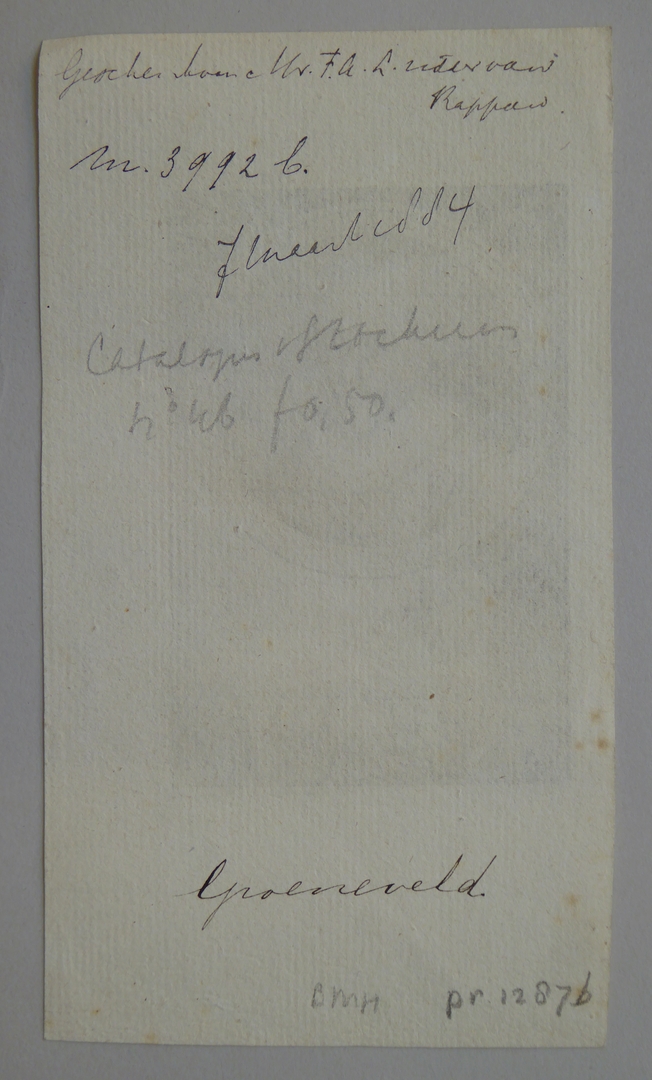 Geschenk van Mr. F. A. L. ridder van
Rappard.
Nr. 3992 b.
7 Maart 1884
Catalogus v Stockum
No 46 f 0,50.
Groeneveld.
BMH pr 1287b